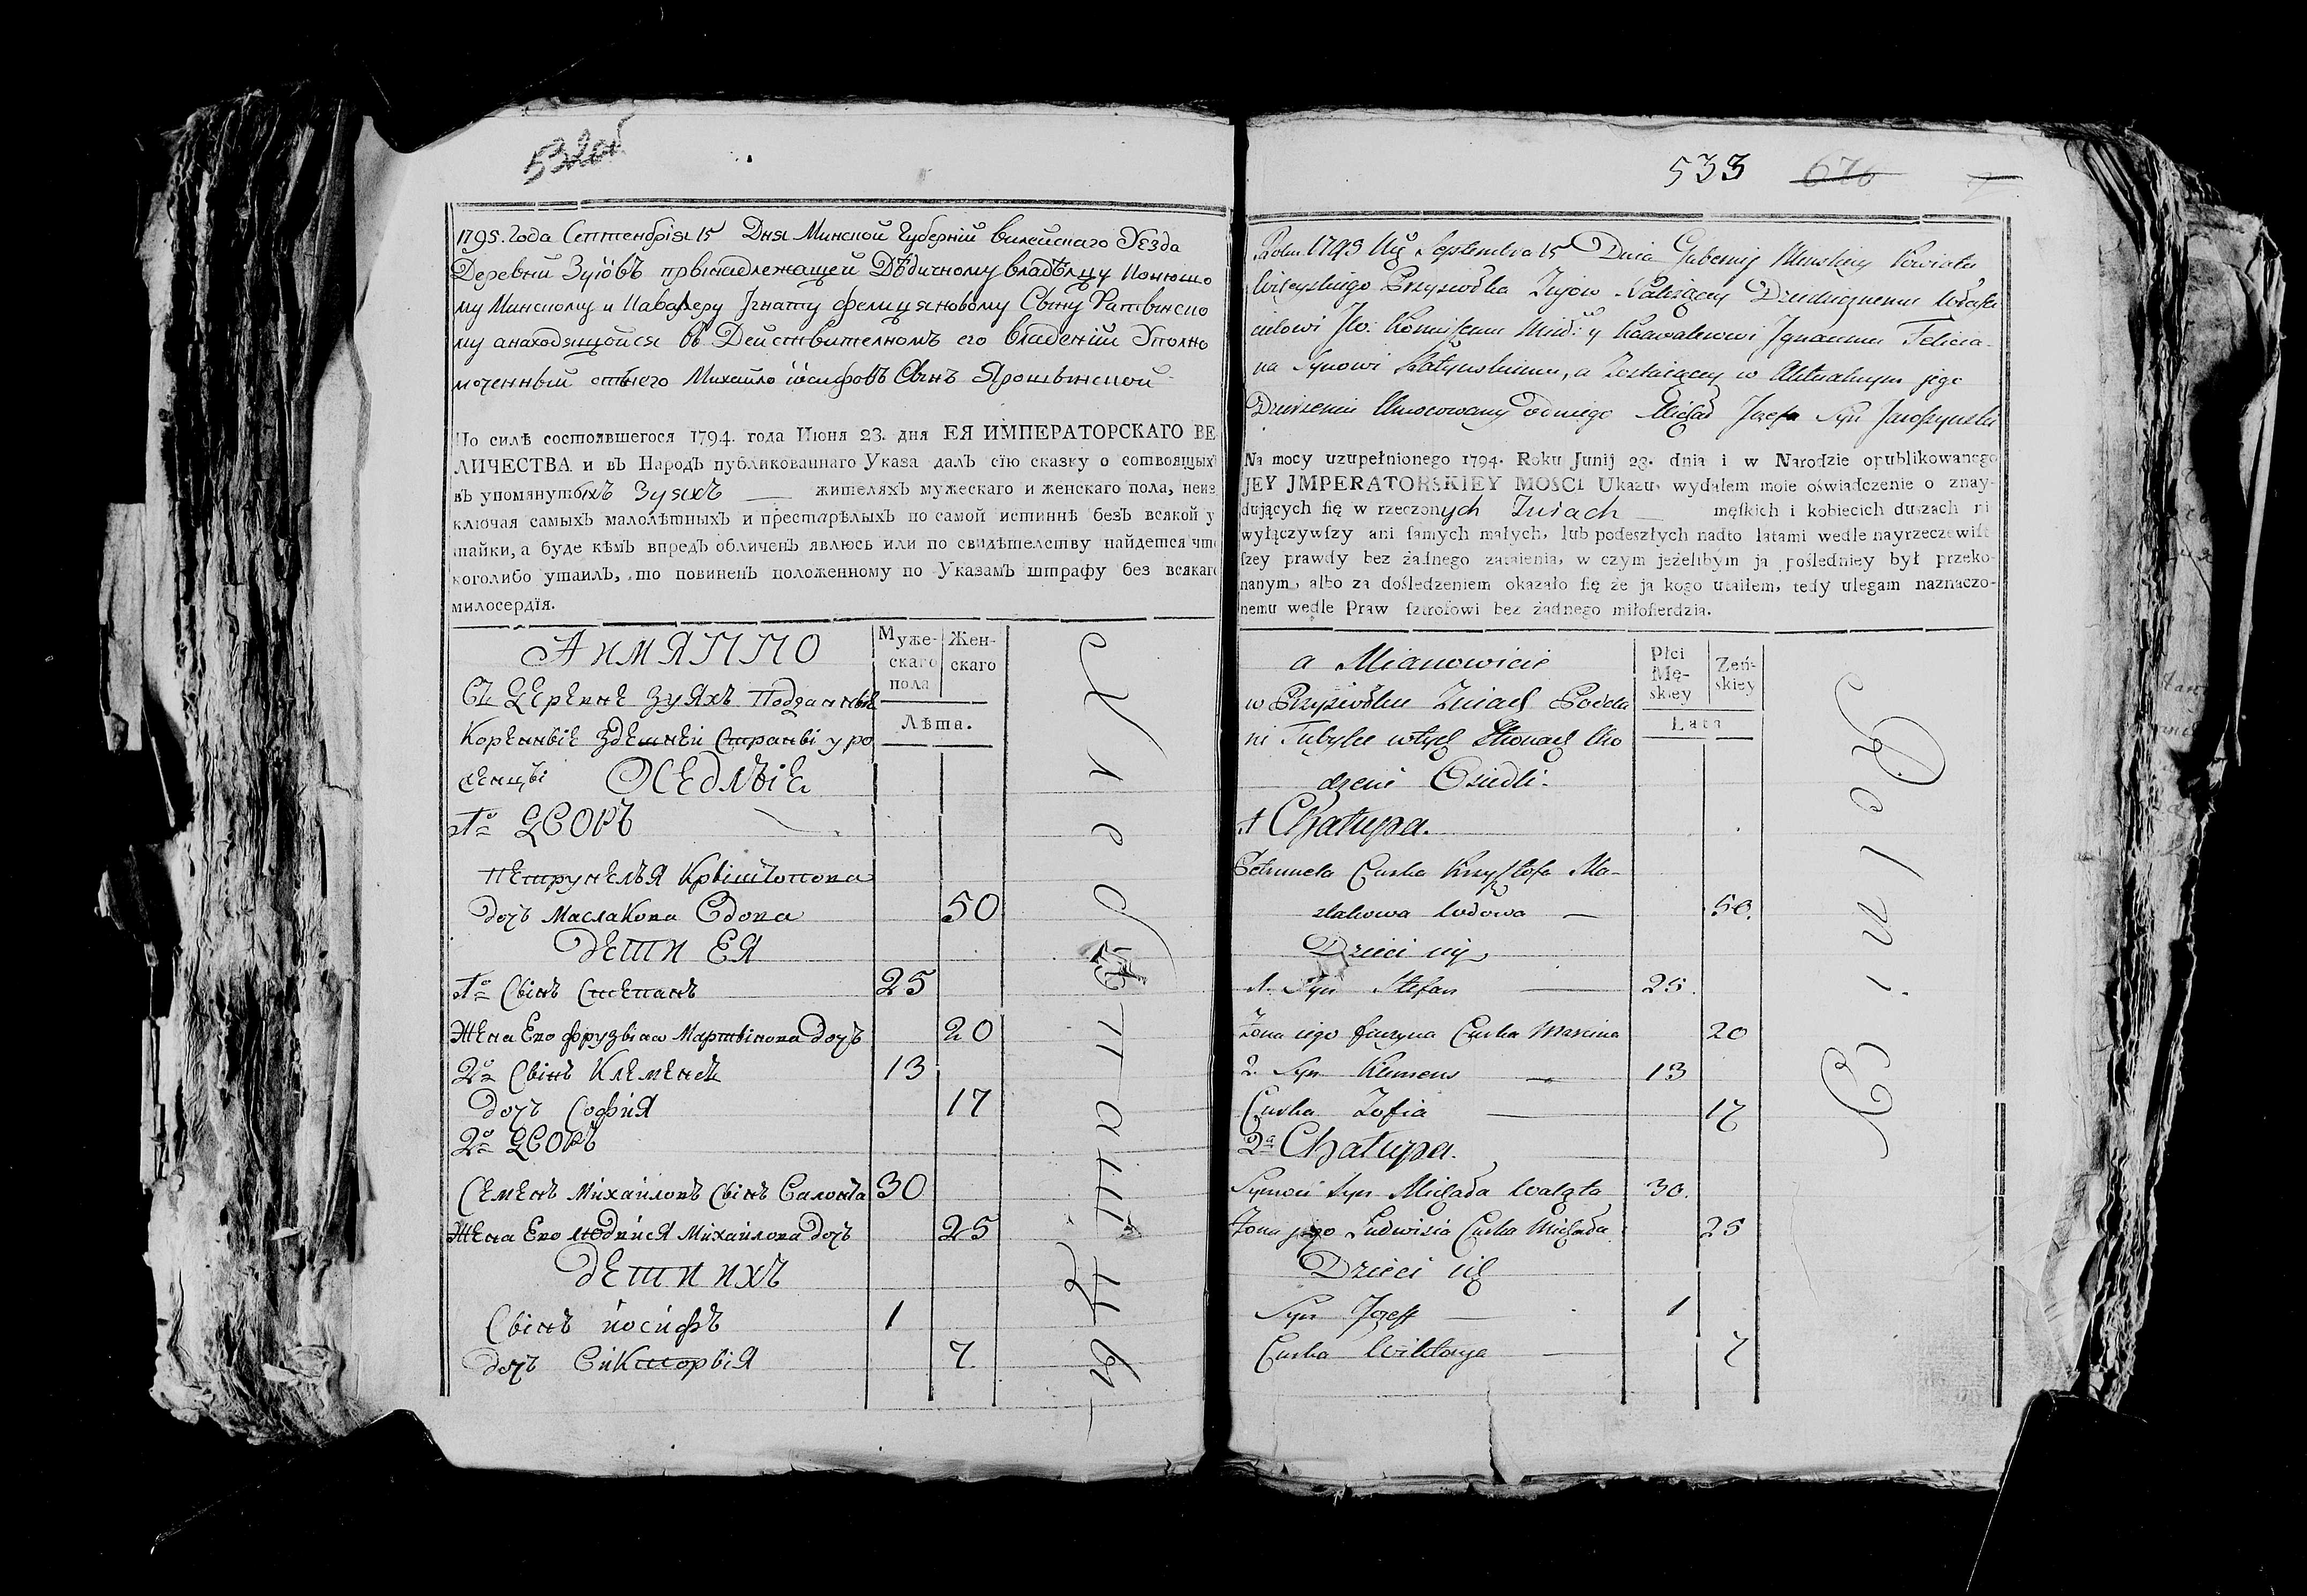 532об
1795. Года Септембрія 15 Дня Минской Губерніи Вилейскаго Уезда
Деревни Зуіовъ прынадлежащей Дѣдичному владѣлцу Конюшо
му Минскому и Кавалеру Ігнату Фелицяновому Сыну Ратынско
му анаходящойся въ Действителномъ его владеніи Уполно
моченный отънего Михайло іосифовъ Сынъ Ярошынской
По силѣ состоявшегося 1794. года Июня 23. дня ЕЯ ИМПЕРАТОРСКАГО ВЕ
ЛИЧЕСТВА и въ Народъ публикованнаго Указа далъ сїю сказку о сотвоящыхъ
въ упомянутыхъ Зуяхъ жителяхъ мужескаго и женскаго пола, неиз
ключая самыхъ малолѣтныхъ и престарѣлыхъ по самой истиннѣ безъ всякой у
тайки, а буде кѣмъ впредъ обличенъ явлюсь или по свидѣтелству найдется что
коголибо утаилъ, то повиненъ положенному по Указамъ штрафу без всякаго
милосердїя.
А имяппо
Муже-
скаго
пола
Жен-
скаго
Лѣта.
Въ Деревне Зуяхъ Подданныѣ
Коренные здешней Страны уро
женцы Оседлые
1о Дворъ
Петрунеля Крыштопова
дочъ Маслакова Вдова 50
Дети Ея
1о Сынъ Степанъ 25
Жена Его Фрузына Мартынова дочъ 20
2о Сынъ Клеменсъ 13
дочъ София 17
2о Дворъ
Семенъ Михаиловъ Сынъ Валонта 30
Жена Его Людвися Михаилова дочъ 25
дети ихъ
Сынъ иосифъ 1
дочъ Викторыя 7
533 676
Roku 1795 Septembra 15 Dnia Gubernij Minskiey Powiatu
Wileyskiego Przysiołka Zuiow Należącey Dziedzicznemu Właści
cielowi Jw: Koniuszemu Miń: y Kaawalerowi Jgnacemu Felicia-
na Synowi Ratyńskiemu, a Zostaiącey w Aktualnym jego
Dzierżeniu Umocowany od niego Michał Jozefa Syn Jaroszynski
Na mocy uzupełnionego 1794. Roku Junij 23. dnia i w Narodzie opublikowanego
JEY JMPERATORSKIEY MOSCI Ukazu, wydałem moie oświadczenie o znay-
dujących się w rzeczonych Zuiach męskich i kobiecich duszach ni
wyłączywszy ani samych małych, lub podeszłych nadto latami wedle nayrzeczewist
szey prawdy bez żadnego zataienia, w czym jeżelibym ja pośledniey był przeko-
nanym, albo za dośledzeniem okazało się że ja kogo utaiłem, tedy ulegam naznaczo-
nemu wedle Praw sztrofowi bez żadnego miłosierdzia.
a Mianowicie
Płci
Mę-
skiey
Żeń-
skiey
Lata
w Przysiołku Zuiach Podda
ni Tubylce wtych Stronach Uro
dzeni Osiedli.
1 Chałupa.
Petrunela Curka Krzysztofa Ma-
slakowa Wdowa 50.
Dzieci iey
1. Syn Stefan 25.
Żona iego Fruzyna Curka Marcina 20
2. Syn Klimens 13
Curka Zofia 17
2a Chałupa.
Symon Syn Michała Waląta 30.
Żona jego Ludwisia Curka Michała 25
Dzieci ich
Syn Jozeff 1
Curka Wiktorya 7